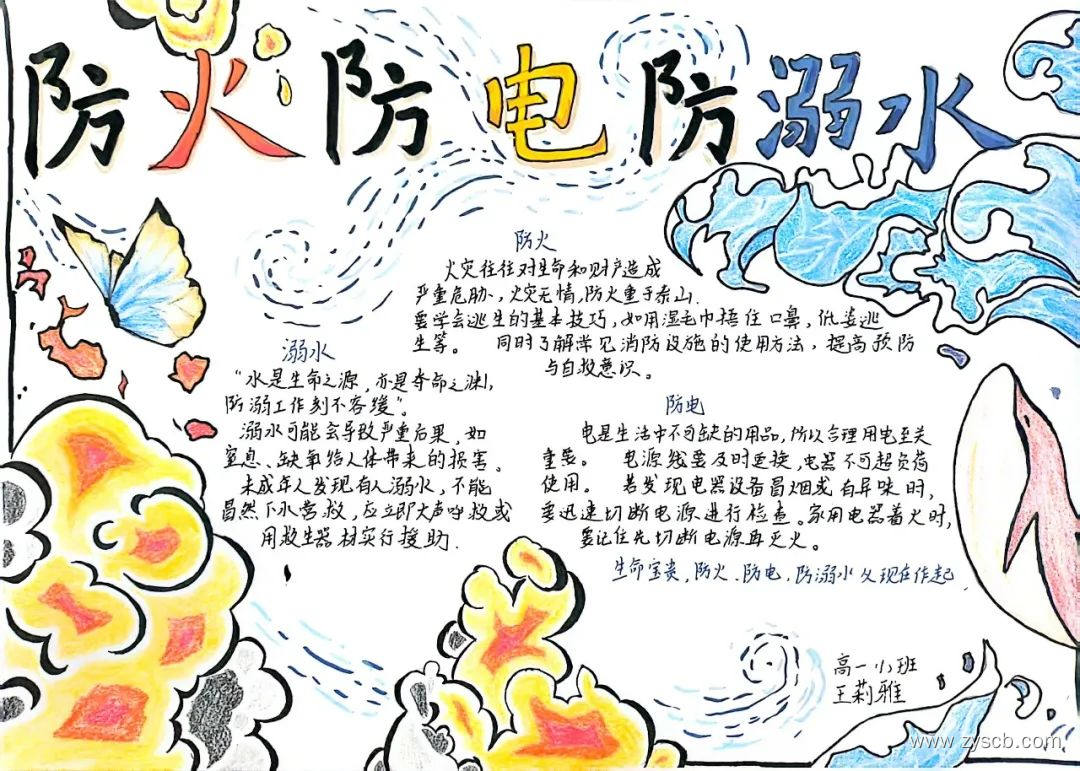 防火防电防溺水
防火
火灾往往对生命和财产造成
严重危胁、火灾无情,防火重于泰山.
要学会逃生的基本技巧,如用湿毛巾捂住口鼻,低姿逃
生等。 同时了解常见消防设施的使用方法,提高预防
与自救意识。
溺水
“水是生命之源,亦是夺命之渊,
防溺工作刻不容缓”。
溺水可能会导致严重后果,如
窒息、缺氧给人体带来的损害。
未成年人发现有人溺水,不能
冒然下水营救,应立即大声呼救或
用救生器材实行援助.
防电
电是生活中不可缺的用品,所以合理用电至关
重要。 电源线要及时更换,电器不可超负荷
使用。 若发现电器设备冒烟或有异味时,
要迅速切断电源进行检查。家用电器着火时,
要记住先切断电源再灭火。
生命宝贵,防火、防电、防溺水从现在作起
高一 班
王莉雅
www.zyscb.com